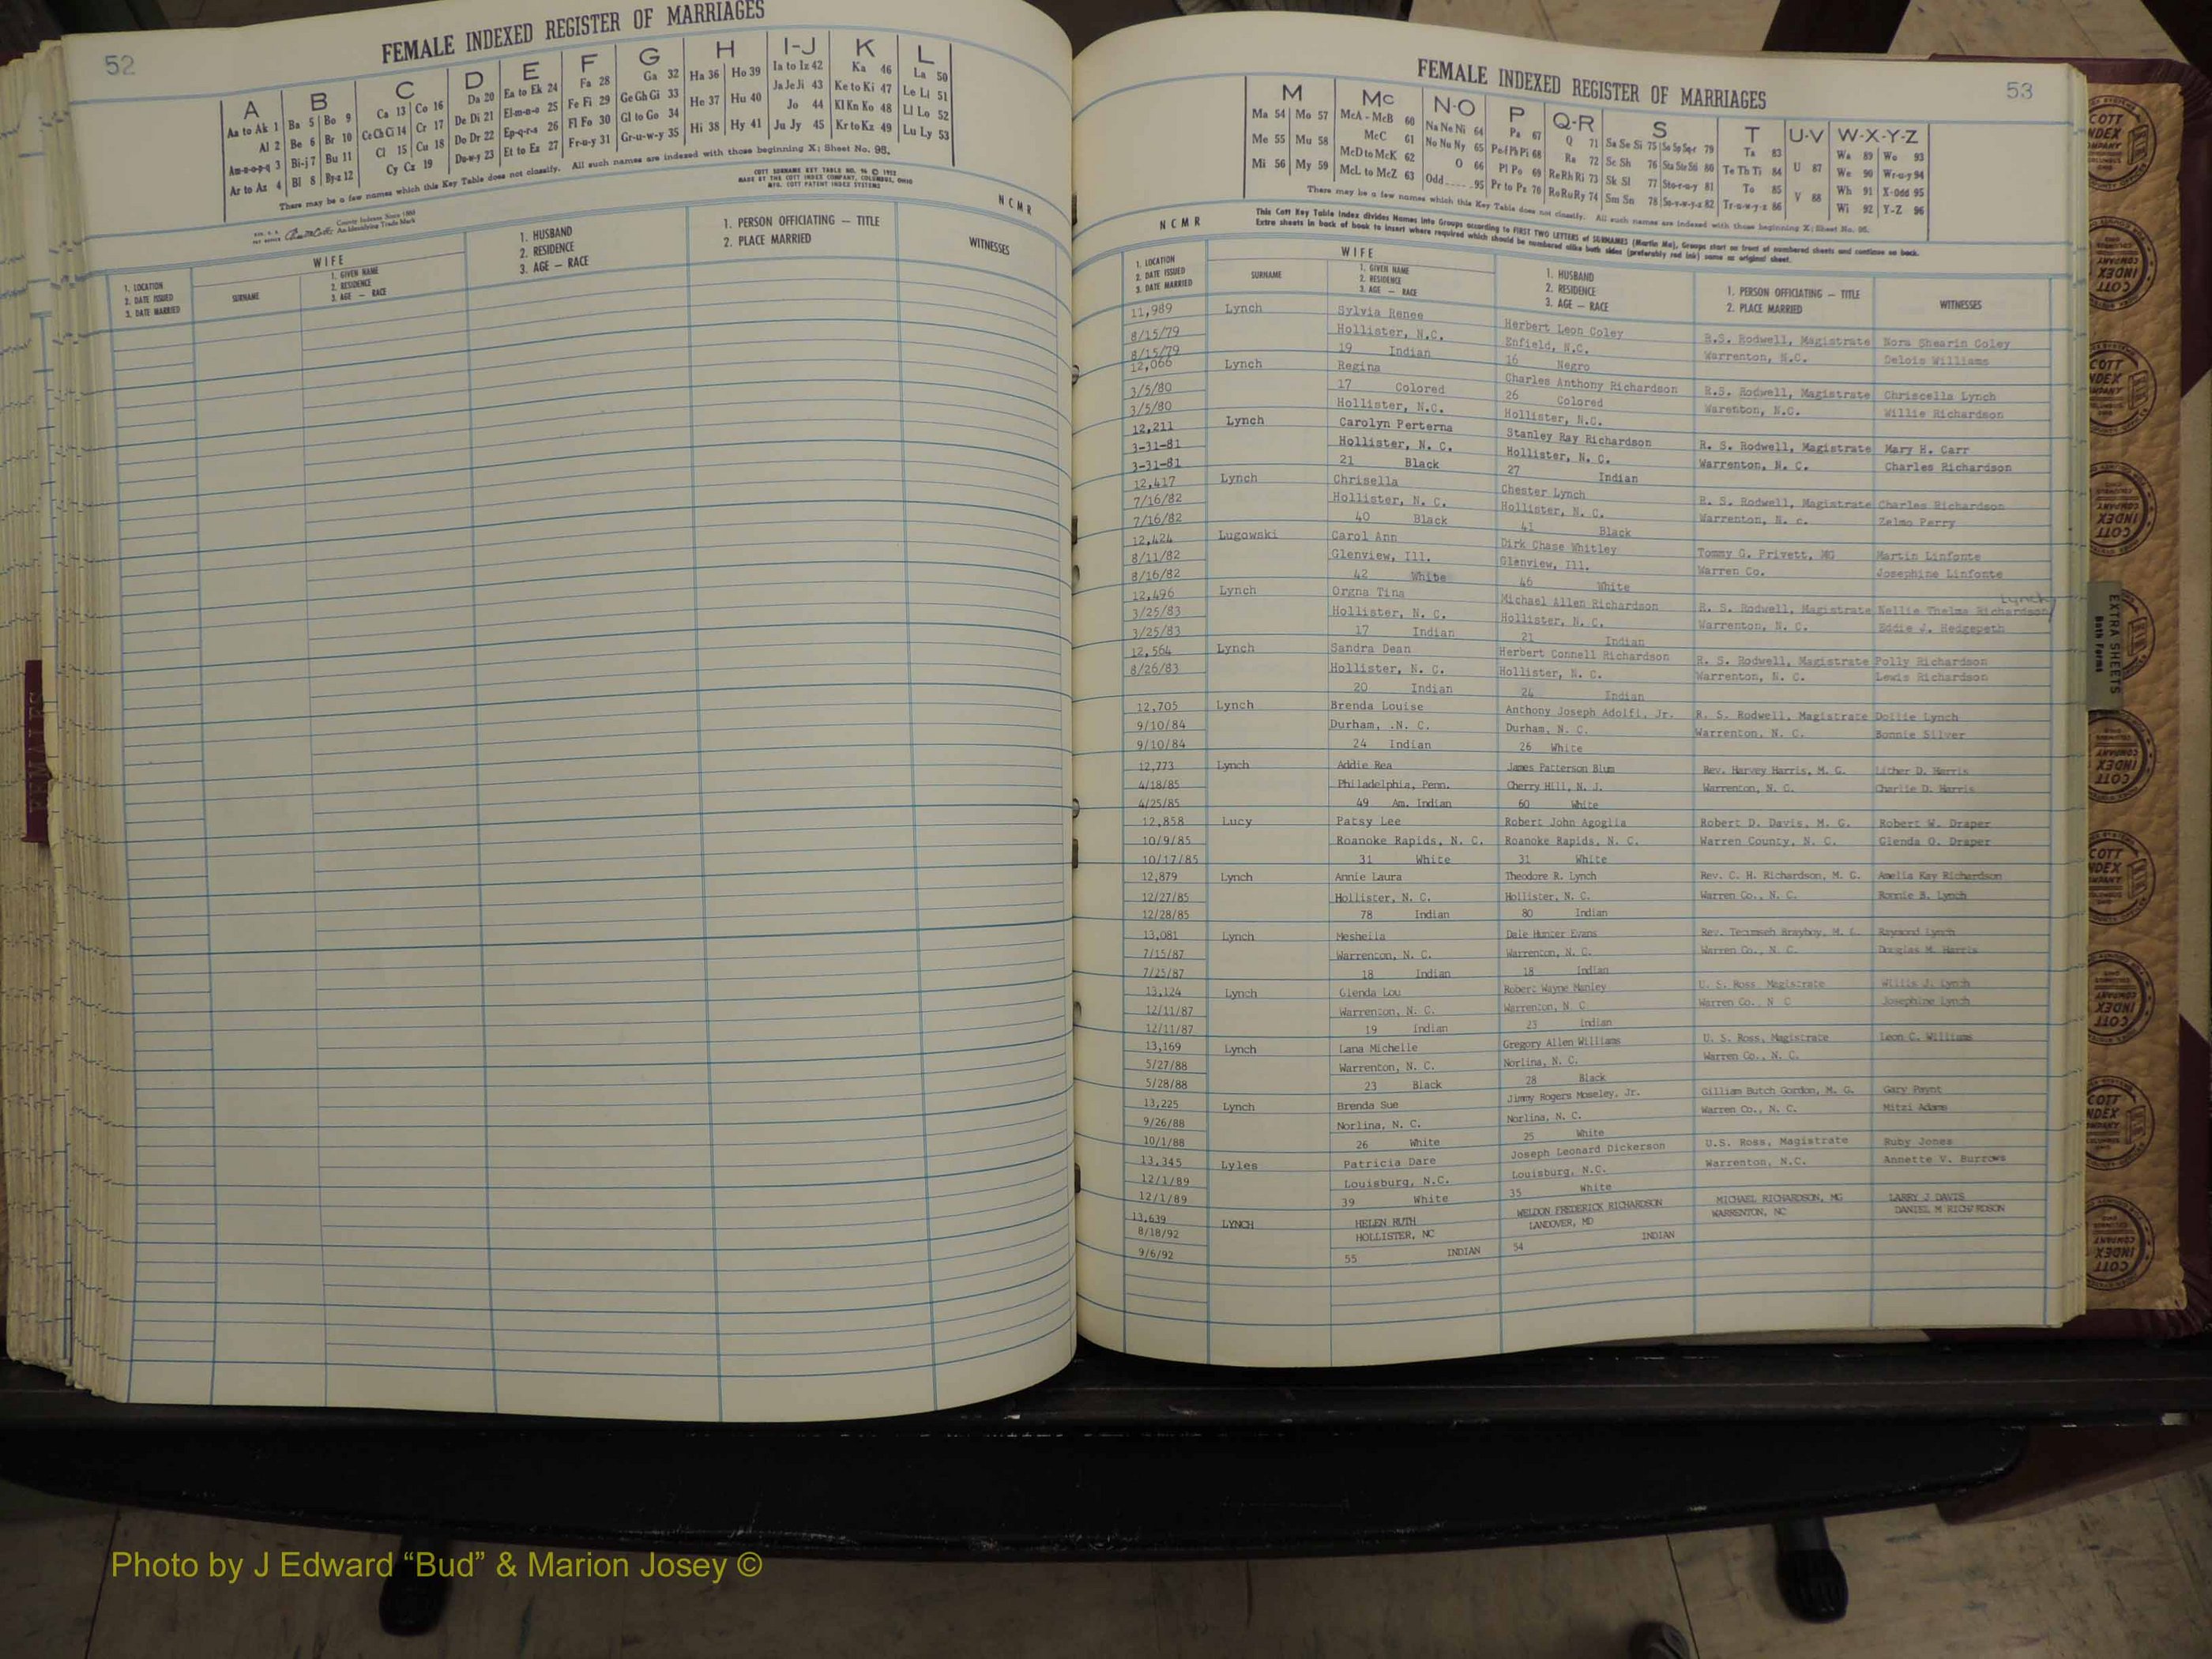 52
FEMALE INDEXED REGISTER OF MARRIAGES
A B C D E F G H I-J K L
Aa to Ak 1 Ba 5 Bo 9 Ca 13 Co 16 Da 20 Ea to Ek 24 Fa 28 Ga 32 Ha 36 Ho 39 Ia to Iz 42 Ka 46 La 50
Al 2 Be 6 Br 10 Ce Ch Ci 14 Cr 17 De Di 21 El-m-n-o 25 Fe Fi 29 Ge Gh Gi 33 He 37 Hu 40 Ja Je Ji 43 Ke to Ki 47 Le Li 51
Am-n-o-p-q 3 Bi-j 7 Bu 11 Cl 15 Cu 18 Do Dr 22 Ep-q-r-s 26 Fl Fo 30 Gl to Go 34 Hi 38 Hy 41 Jo 44 Kl Kn Ko 48 Ll Lo 52
Ar to Az 4 Bl 8 By-z 12 Cy Cz 19 Du-w-y 23 Et to Ez 27 Fr-u-y 31 Gr-u-w-y 35 Ju Jy 45 Kr to Kz 49 Lu Ly 53
There may be a few names which this Key Table does not classify. All such names are indexed with those beginning X; Sheet No. 95.
COTT SURNAME KEY TABLE NO. 96 © 1952
MADE BY THE COTT INDEX COMPANY, COLUMBUS, OHIO
MFG. COTT PATENT INDEX SYSTEMS
County Indexes Since 1888
An Identifying Trade Mark
NCMR
1. LOCATION
2. DATE ISSUED
3. DATE MARRIED
WIFE
SURNAME
1. GIVEN NAME
2. RESIDENCE
3. AGE — RACE
1. HUSBAND
2. RESIDENCE
3. AGE — RACE
1. PERSON OFFICIATING — TITLE
2. PLACE MARRIED
WITNESSES
FEMALE INDEXED REGISTER OF MARRIAGES
53
M Mc N-O P Q-R S T U-V W-X-Y-Z
Ma 54 Mo 57 McA - McB 60 Na Ne Ni 64 Pa 67 Q 71 Sa Se Si 75 So Sp Sq-r 79 Ta 83 U 87 Wa 89 Wo 93
Me 55 Mu 58 McC 61 No Nu Ny 65 Pe-f Ph Pi 68 Ra 72 Sc Sh 76 Sta Ste Sti 80 Te Th Ti 84 V 88 We 90 Wr-u-y 94
Mi 56 My 59 McD to McK 62 O 66 Pl Po 69 Re Rh Ri 73 Sk Sl 77 Sto-r-u-y 81 To 85 Wh 91 X-Odd 95
McL to McZ 63 Odd ..... 95 Pr to Pz 70 Ro Ru Ry 74 Sm Sn 78 Su-v-w-y-z 82 Tr-u-w-y-z 86 Wi 92 Y-Z 96
There may be a few names which this Key Table does not classify. All such names are indexed with those beginning X; Sheet No. 95.
This Cott Key Table Index divides Names into Groups according to FIRST TWO LETTERS of SURNAMES (Martin Ma), Groups start on front of numbered sheets and continue on back.
Extra sheets in back of book to insert where required which should be numbered alike both sides (preferably red ink) same as original sheet.
NCMR
1. LOCATION
2. DATE ISSUED
3. DATE MARRIED
WIFE
SURNAME
1. GIVEN NAME
2. RESIDENCE
3. AGE — RACE
1. HUSBAND
2. RESIDENCE
3. AGE — RACE
1. PERSON OFFICIATING — TITLE
2. PLACE MARRIED
WITNESSES
11,989 Lynch Sylvia Renee Herbert Leon Coley R.S. Rodwell, Magistrate Nora Shearin Coley
8/15/79 Hollister, N.C. Enfield, N.C. Warrenton, N.C. Delois Williams
8/15/79 19 Indian 16 Negro
12,066 Lynch Regina Charles Anthony Richardson R.S. Rodwell, Magistrate Chriscella Lynch
3/5/80 17 Colored 26 Colored Warenton, N.C. Willie Richardson
3/5/80 Hollister, N.C. Hollister, N.C.
12,211 Lynch Carolyn Perterna Stanley Ray Richardson R. S. Rodwell, Magistrate Mary H. Carr
3-31-81 Hollister, N. C. Hollister, N. C. Warrenton, N. C. Charles Richardson
3-31-81 21 Black 27 Indian
12,417 Lynch Chrisella Chester Lynch R. S. Rodwell, Magistrate Charles Richardson
7/16/82 Hollister, N. C. Hollister, N. C. Warrenton, N. c. Zelma Perry
7/16/82 40 Black 41 Black
12,424 Lugowski Carol Ann Dirk Chase Whitley Tommy G. Privett, MG Martin Linfonte
8/11/82 Glenview, Ill. Glenview, Ill. Warren Co. Josephine Linfonte
8/16/82 42 White 46 White
12,496 Lynch Orgna Tina Michael Allen Richardson R. S. Rodwell, Magistrate Nellie Thelma Richardson Lynch
3/25/83 Hollister, N. C. Hollister, N. C. Warrenton, N. C. Eddie J. Hedgepeth
3/25/83 17 Indian 21 Indian
12,564 Lynch Sandra Dean Herbert Connell Richardson R. S. Rodwell, Magistrate Polly Richardson
8/26/83 Hollister, N. C. Hollister, N. C. Warrenton, N. C. Lewis Richardson
20 Indian 24 Indian
12,705 Lynch Brenda Louise Anthony Joseph Adolfi, Jr. R. S. Rodwell, Magistrate Dollie Lynch
9/10/84 Durham, .N. C. Durham, N. C. Warrenton, N. C. Bonnie Silver
9/10/84 24 Indian 26 White
12,773 Lynch Addie Rea James Patterson Blum Rev. Harvey Harris, M. G. Lither D. Harris
4/18/85 Philadelphia, Penn. Cherry Hill, N. J. Warrenton, N. C. Charlie D. Harris
4/25/85 49 Am. Indian 60 White
12,858 Lucy Patsy Lee Robert John Agoglia Robert D. Davis, M. G. Robert W. Draper
10/9/85 Roanoke Rapids, N. C. Roanoke Rapids, N. C. Warren County, N. C. Glenda O. Draper
10/17/85 31 White 31 White
12,879 Lynch Annie Laura Theodore R. Lynch Rev. C. H. Richardson, M. G. Amelia Kay Richardson
12/27/85 Hollister, N. C. Hollister, N. C. Warren Co., N. C. Ronnie B. Lynch
12/28/85 78 Indian 80 Indian
13,081 Lynch Mesheila Dale Hunter Evans Rev. Tecumseh Brayboy, M. G. Raymond Lynch
7/15/87 Warrenton, N. C. Warrenton, N. C. Warren Co., N. C. Douglas M. Harris
7/25/87 18 Indian 18 Indian
13,124 Lynch Glenda Lou Robert Wayne Manley U. S. Ross Magistrate Willis J. Lynch
12/11/87 Warrenton, N. C. Warrenton, N. C Warren Co., N. C Josephine Lynch
12/11/87 19 Indian 23 Indian
13,169 Lynch Lana Michelle Gregory Allen Williams U. S. Ross, Magistrate Leon C. Williams
5/27/88 Warrenton, N. C. Norlina, N. C. Warren Co., N. C.
5/28/88 23 Black 28 Black
13,225 Lynch Brenda Sue Jimmy Rogers Moseley, Jr. Gilliam Butch Gordon, M. G. Gary Paynt
9/26/88 Norlina, N. C. Norlina, N. C. Warren Co., N. C. Mitzi Adams
10/1/88 26 White 25 White
13,345 Lyles Patricia Dare Joseph Leonard Dickerson U.S. Ross, Magistrate Ruby Jones
12/1/89 Louisburg, N.C. Louisburg, N.C. Warrenton, N.C. Annette V. Burrows
12/1/89 39 White 35 White
13,639 LYNCH HELEN RUTH WELDON FREDERICK RICHARDSON MICHAEL RICHARDSON, MG LARRY J DAVIS
8/18/92 HOLLISTER, NC LANDOVER, MD WARRENTON, NC DANIEL M RICHARDSON
9/6/92 55 INDIAN 54 INDIAN
EXTRA SHEETS
Both Forms
COTT
INDEX
COMPANY
Photo by J Edward “Bud” & Marion Josey ©